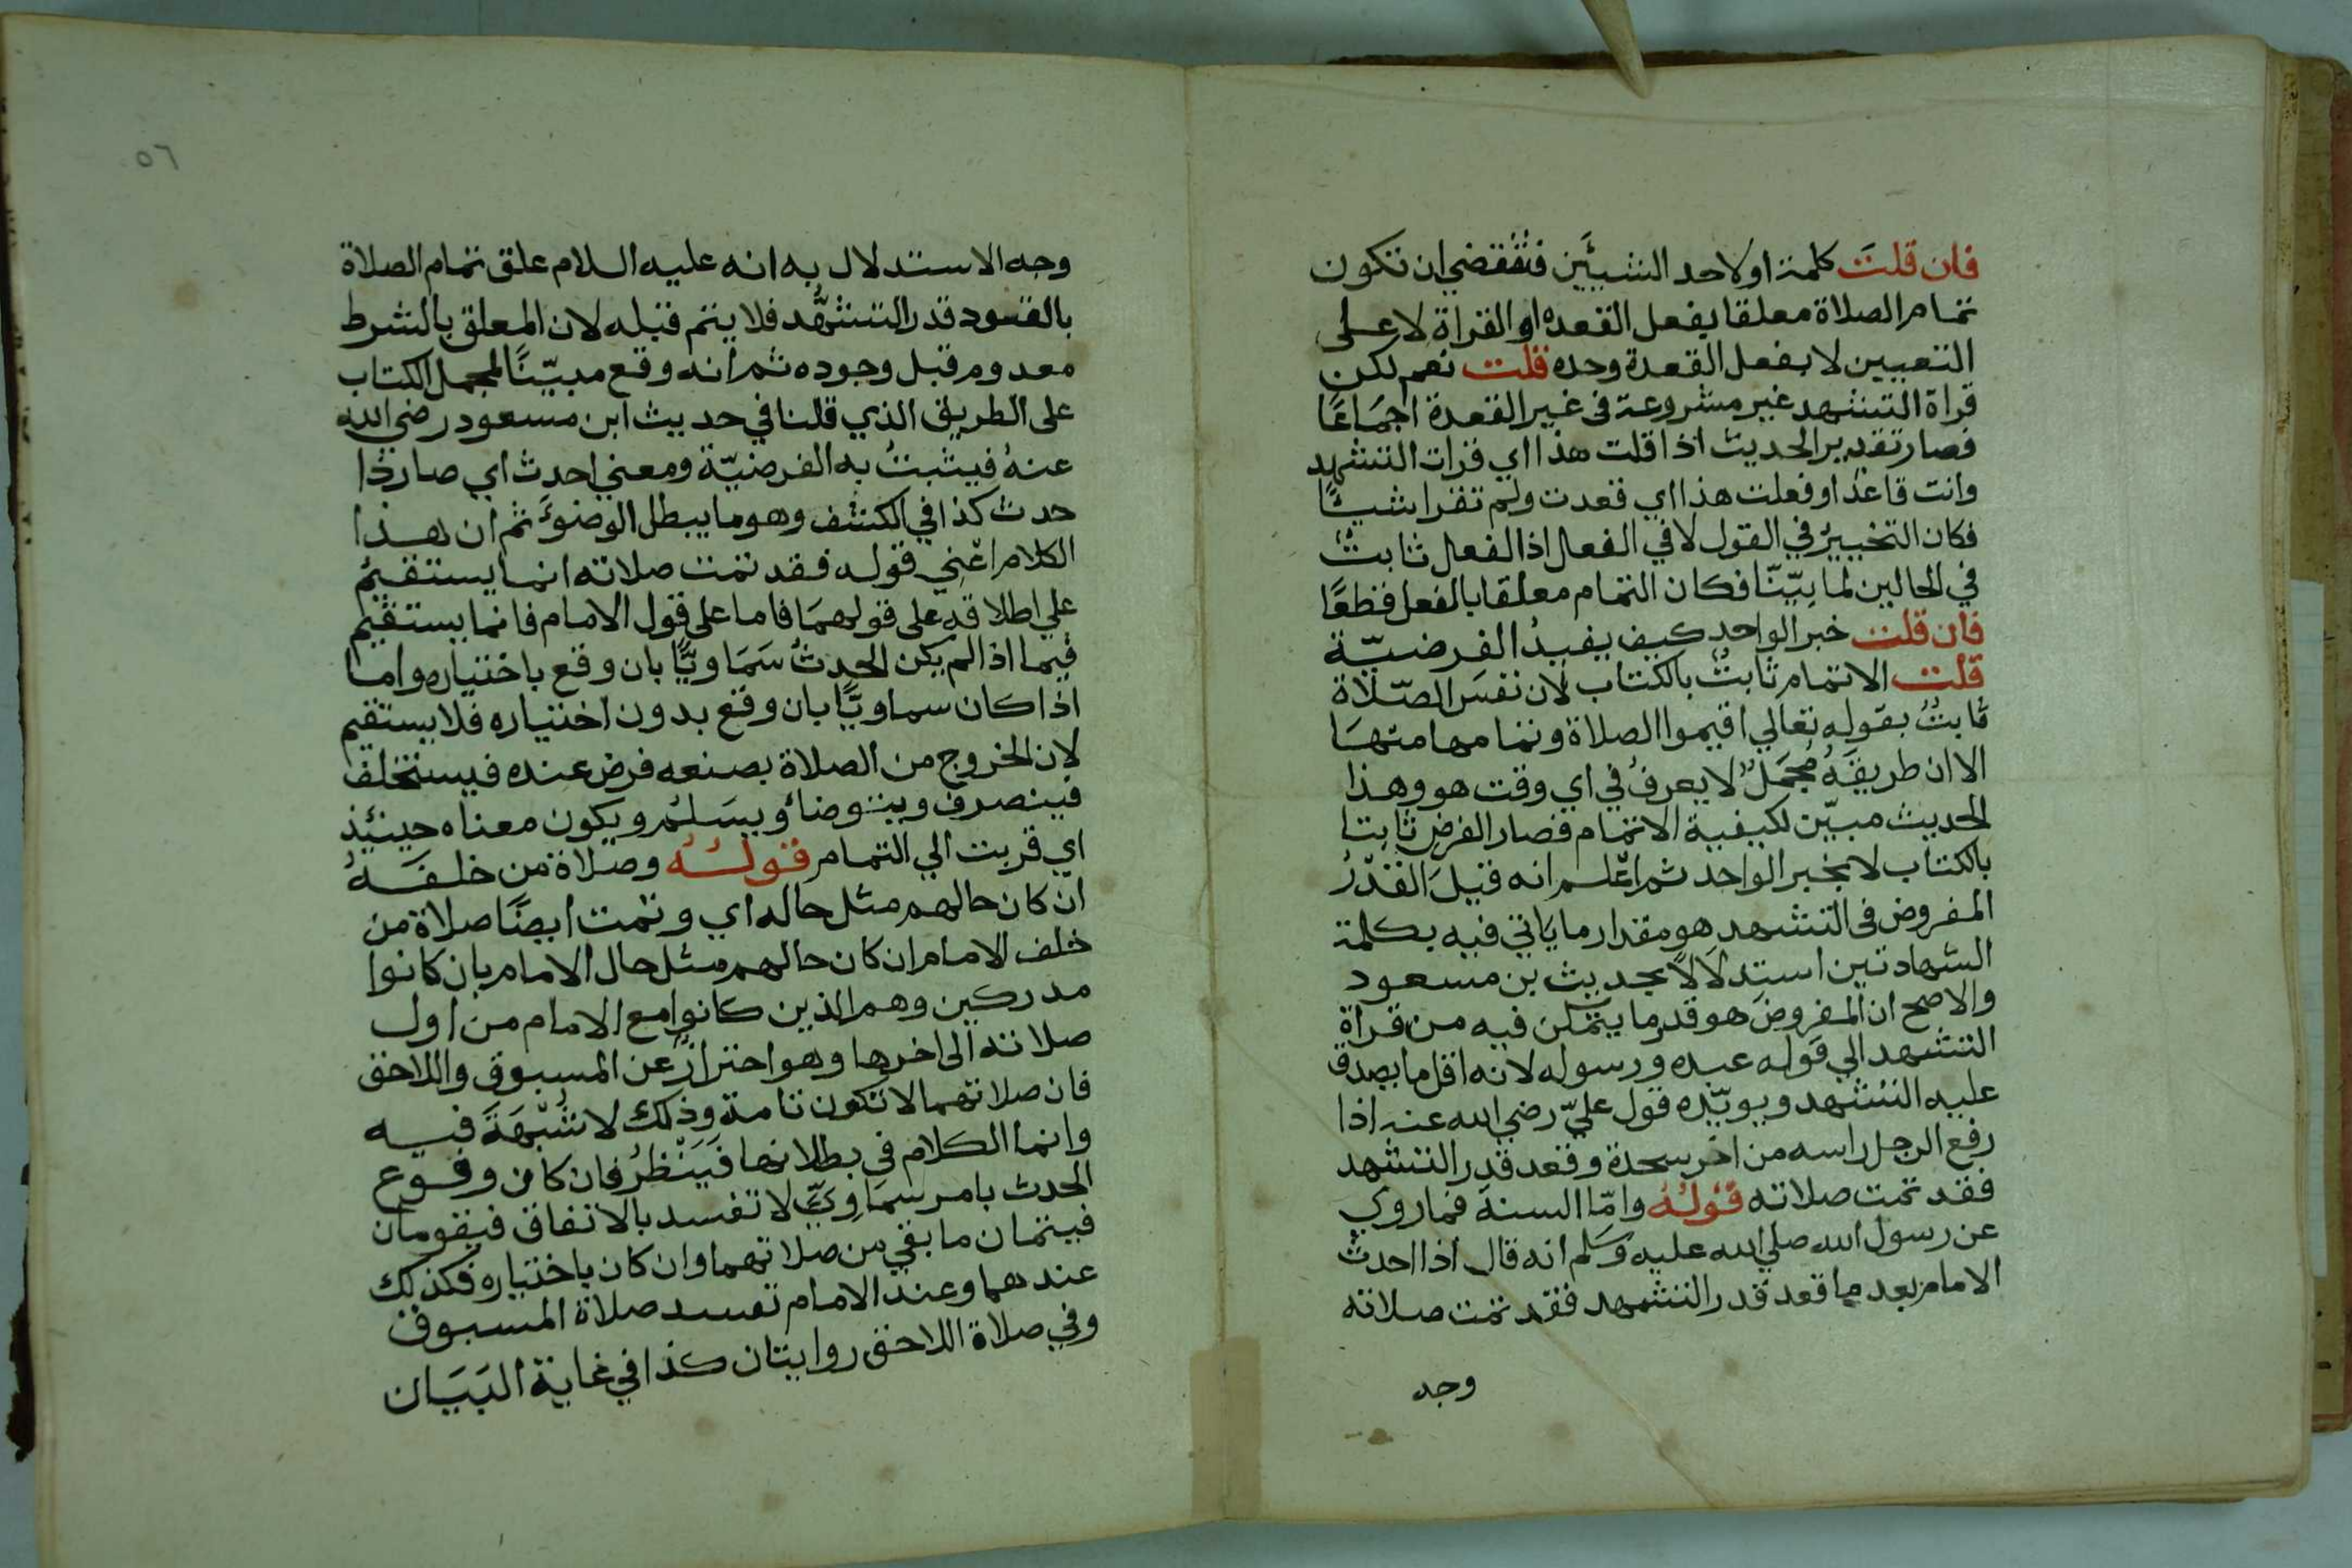 فان قلت كلمة او لاحد الشيئين فتقتضي ان تكون
تمام الصلاة معلقا بفعل القعدة او القراة لا على
التعيين لا بفعل القعدة وحده قلت نعم لكن
قراة التشهد غير مشروعة فى غير القعدة اجماعًا
فصار تقدير الحديث اذا قلت هذا اي قرات التشهد
وانت قاعدٌ او فعلت هذا اي قعدت ولم تقرا شيئًا
فكان التخييرُ في القول لا في الفعل اذا الفعل ثابتٌ
في الحالين لما بيّنّا فكان التمام معلقا بالفعل قطعًا
فان قلت خبر الواحد كيف يفيدُ الفرضيّة
قلت الاتمام ثابتٌ بالكتاب لان نفسَ الصّلاة
ثابتٌ بقوله تعالي اقيموا الصلاة وتمامها منها
الا ان طريقَهُ مُجمَلٌ لا يعرفُ في اي وقت هو وهذا
الحديث مبيّن لكيفية الاتمام فصار الفرض ثابتا
بالكتاب لا بخبر الواحد ثم اعْلم انه قيلَ القَدْرُ
المفروض فى التشهد هو مقدار ما ياتي فيه بكلمة
الشهادتين استدلالاً بحديث بن مسعود
والاصح ان المفروض هو قدر ما يتمكن فيه من قراة
التشهد الي قوله عبده ورسوله لانه اقل ما يصدق
عليه التشهد ويويّده قول عليّ رضي الله عنه اذا
رفع الرجل راسه من اخر سجدة وقعد قدر التشهد
فقد تمت صلاته قولُهُ وامّا السنة فما روي
عن رسول الله صلي الله عليه وسلم انه قال اذا احدث
الامام بعد ما قعد قدر التشهد فقد تمت صلاته
وجه
٥٦
وجه الاستدلال به انه عليه السلام علق تمام الصلاة
بالقعود قدر التشهُّد فلا يتم قبله لان المعلق بالشرط
معدوم قبل وجوده ثم انه وقع مبيّنًا لمجمل الكتاب
على الطريق الذي قلنا في حديث ابن مسعود رضي الله
عنهُ فيثبتُ به الفرضيّة ومعني احدث اي صار ذا
حدث كذا في الكشف وهو ما يبطل الوضوءَ ثم ان هذا
الكلام اعْني قوله فقد تمت صلاته انما يستقيمُ
علي اطلاقه على قولهمَا فاما على قول الامام فانما يستقيم
فيما اذا لم يكن الحدثُ سَمَاويًّا بان وقع باختياره واما
اذا كان سماويًّا بان وقع بدون اختياره فلا يستقيم
لان الخروج من الصلاة بصنعه فرض عنده فيستخلف
فينصرف ويتوضأ ويسَلمُ ويكون معناه حينئذ
اي قربت الي التمام قولُهُ وصلاة من خلفَهُ
ان كان حالهم مثل حاله اي وتمت ايضًا صلاة من
خلف الامام ان كان حالهم مثل حال الامام بان كانوا
مدركين وهم الذين كانوا مع الامام من اول
صلاته الى اخرها وهو احترازٌ عن المسبوق واللاحق
فان صلاتهما لا تكون تامة وذلك لا شُبْهَةَ فيه
وانما الكلام في بطلانها فَيَنْظرُ فان كان وقوع
الحدث بامر سمَاوِيٍّ لا تفسد بالاتفاق فيقومان
فيتمان ما بقي من صلاتهما وان كان باختياره فكذلك
عندهما وعند الامام تفسد صلاة المسبوق
وفي صلاة اللاحق روايتان كذا في غاية البَيَان